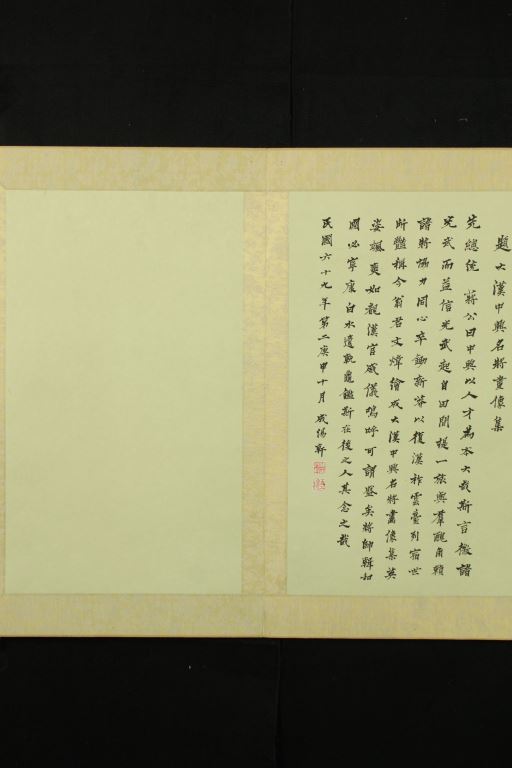 題大漢中興名將畫像集
先總統　蔣公曰中興以人才為本大哉斯言徵諸
光武而益信光武起自田間提一旅與羣醜角賴
諸將協力同心卒鋤新莽以復漢祚雲臺列宿世
所豔稱今翁君文煒繪成大漢中興名將畫像集英
姿颯爽如親漢官威儀嗚呼可謂盛矣將帥輯和
國必寧康白水遺軌龜鑑斯在後之人其念之哉
民國六十九年第二庚申十月　成惕軒